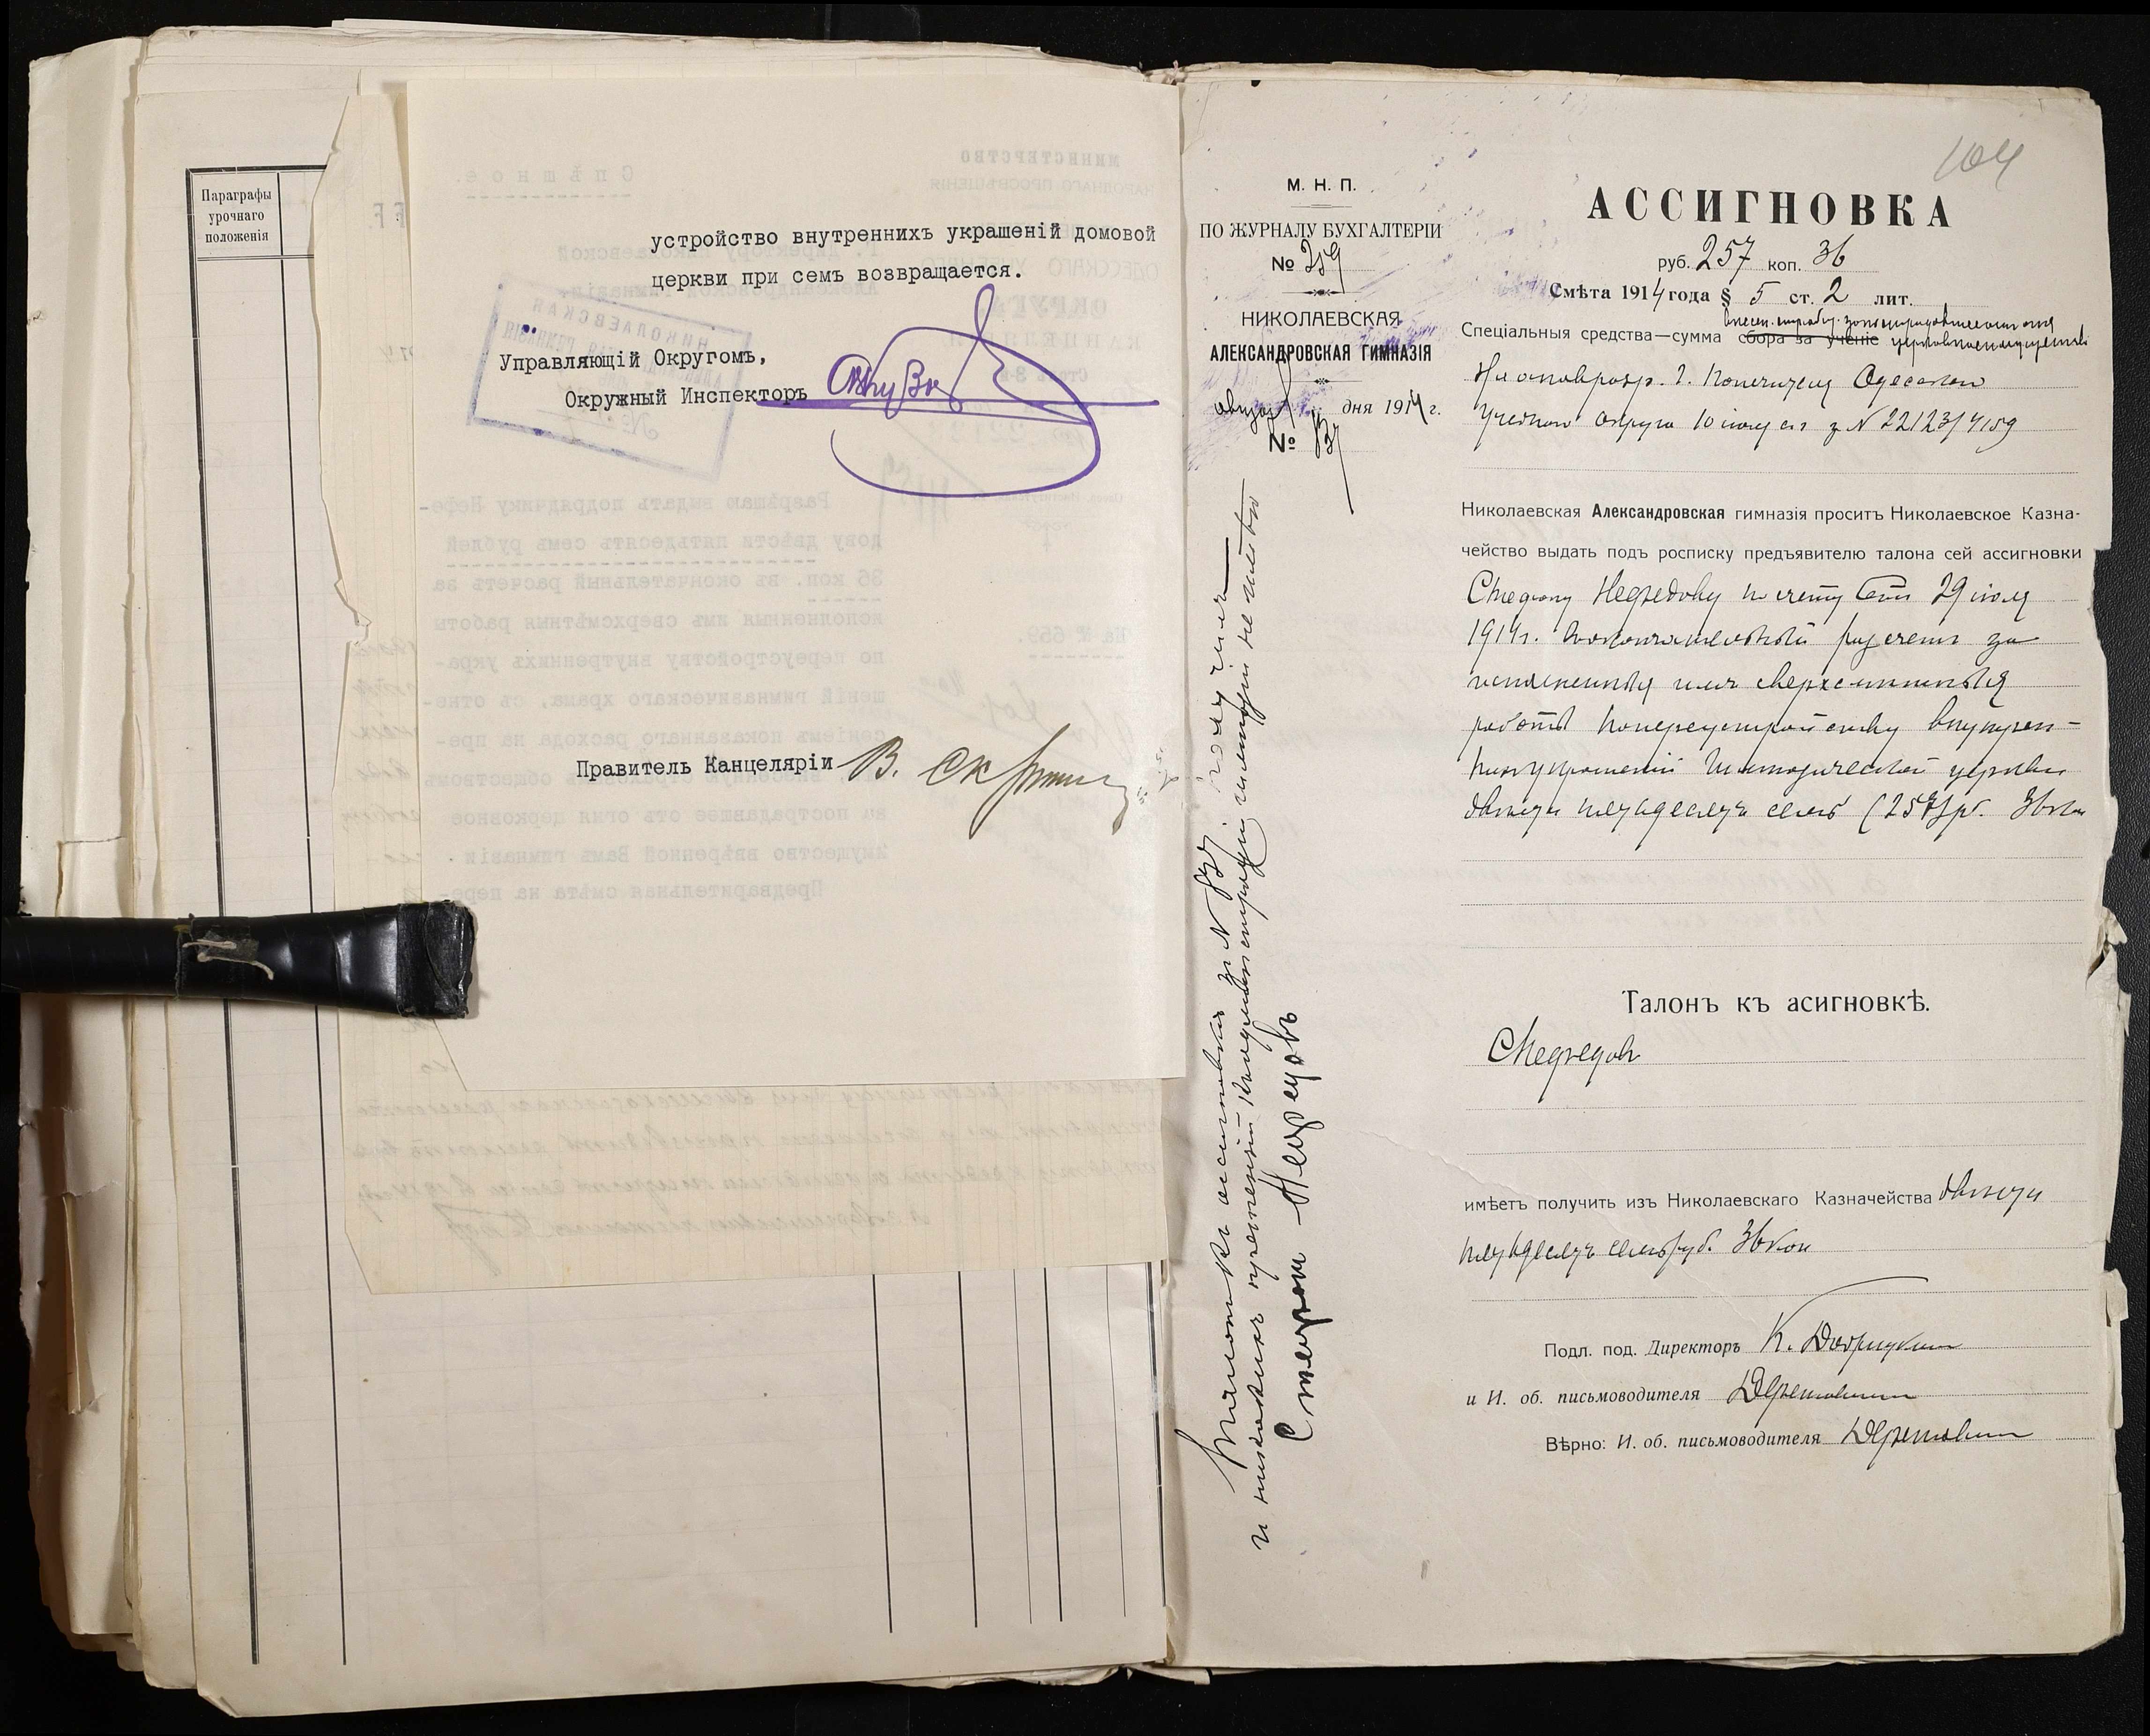 Параграфы
урочнаго
положенія
устройство внутреннихъ украшеній домовой
церкви при семъ возвращается.
Управляющій Округомъ,
Окружный Инспекторъ
Правитель Канцеляріи В.
104
М. Н. П.
ПО ЖУРНАЛУ БУХГАЛТЕРІИ
№ 259
НИКОЛАЕВСКАЯ
АЛЕКСАНДРОВСКАЯ ГИМНАЗІЯ
август дня 1914 г.
№ 837
АССИГНОВКА
руб. 257 коп. 36
Смѣта 1914 года § 5 ст. 2 лит.
Спеціальныя средства—сумма сбора за ученіе
На основ. г. Попечителя Одесскаго
Учебнаго Округа 10 іюля с.г. за № 22123/4159
Николаевская Александровская гимназія проситъ Николаевское Казна-
чейство выдать подъ росписку предъявителю талона сей ассигновки
Степану Нефедову по счету отъ 29 іюля
1914 г. окончательный разсчетъ за
исполненныя имъ сверхсмѣтныя
работы по переустройству внутрен-
нихъ украшеній гимназической церкви
двѣсти пятьдесятъ семь (257) р. 36 коп
Талонъ къ асигновкѣ.
С Нефедовъ
имѣетъ получить изъ Николаевскаго Казначейства двѣсти
пятьдесятъ семь руб. 36 коп
Подл. под. Директоръ К.
и И. об. письмоводителя
Вѣрно: И. об. письмоводителя
Талонъ къ ассигновкѣ за № 837 получилъ
и никакихъ претензій къ гимназіи не имѣю
Степан Нефедовъ